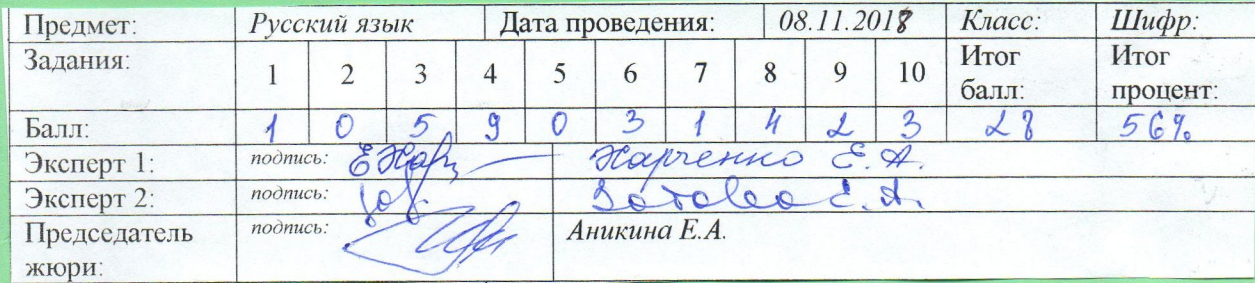 Предмет: Русский язык Дата проведения: 08.11.2018 Класс: Шифр:
Задания: 1 2 3 4 5 6 7 8 9 10 Итог балл: Итог процент:
Балл: 1 0 5 9 0 3 1 4 2 3 28 56%
Эксперт 1: подпись: Харченко Е.А.
Эксперт 2: подпись: Зотова Е.А.
Председатель жюри: подпись: Аникина Е.А.